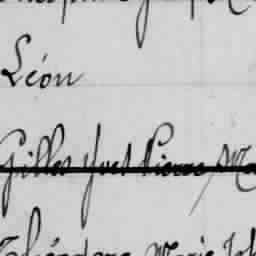 Léon
Gilles Yves Pierre, Ma
Théodore Marie Joh